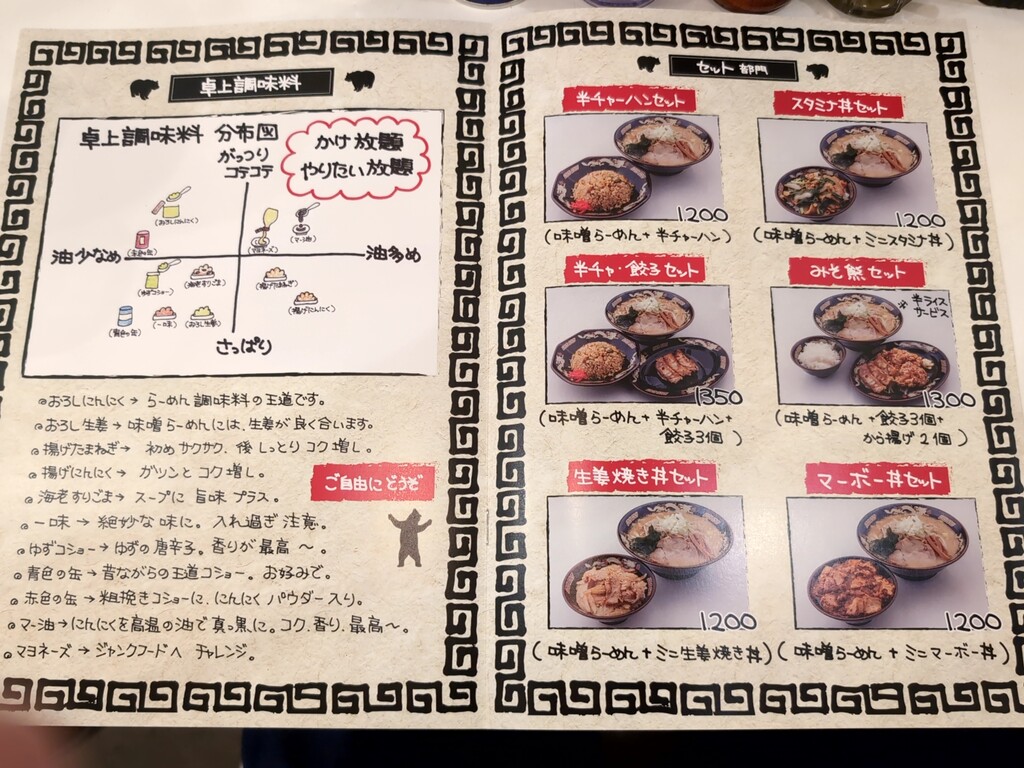 卓上調味料
卓上調味料 分布図
かけ放題
やりたい放題
がっつり
コテコテ
(おろしにんにく)
(赤色の缶)
(マヨネーズ)
(マー油)
油少なめ
油多め
(ゆずコショー)
(海老すりごま)
(揚げたまねぎ)
(揚げにんにく)
(青色の缶)
(一味)
(おろし生姜)
さっぱり
おろしにんにく→らーめん調味料の王道です。
おろし生姜→味噌らーめんには、生姜が良く合います。
揚げたまねぎ→初めサクサク、後しっとりコク増し。
揚げにんにく→ガツンとコク増し。
海老すりごま→スープに旨味プラス。
一味→絶妙な味に。入れ過ぎ注意。
ゆずコショー→ゆずの唐辛子。香りが最高〜。
青色の缶→昔ながらの王道コショー。お好みで。
赤色の缶→粗挽きコショーに、にんにくパウダー入り。
マー油→にんにくを高温の油で真っ黒に。コク、香り、最高〜。
マヨネーズ→ジャンクフードへチャレンジ。
ご自由にどうぞ
セット部門
半チャーハンセット
1200
(味噌らーめん+半チャーハン)
スタミナ丼セット
1200
(味噌らーめん+ミニスタミナ丼)
半チャ・餃子セット
1350
(味噌らーめん+半チャーハン+
餃子3個)
みそ熊セット
※半ライス
サービス
1300
(味噌らーめん+餃子3個+
から揚げ2個)
生姜焼き丼セット
1200
(味噌らーめん+ミニ生姜焼き丼)
マーボー丼セット
1200
(味噌らーめん+ミニマーボー丼)